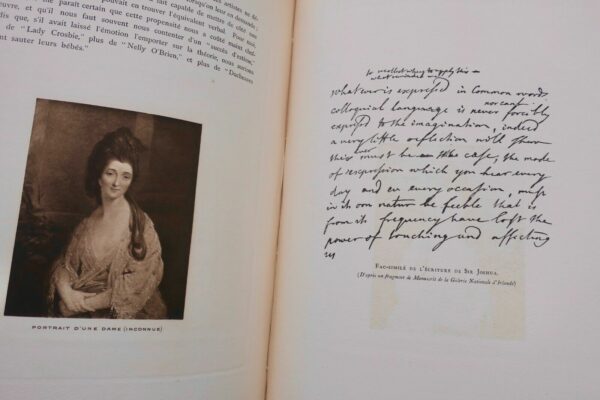 me paraît certain que cette propensité nous a coûté maint chef-
œuvre, et qu'il nous faut souvent nous contenter d'un "succès d'estime,"
dis que, s'il avait laissé l'émotion l'emporter sur la théorie, nous aurions
de "Lady Crosbie," plus de "Nelly O'Brien," et plus de "Duchesses
sauter leurs bébés."
PORTRAIT D'UNE DAME (INCONNUE)
to recollect
whatever is expressed in Common words
nor can
colloquial language is never forcibly
expressed to the imagination, indeed
a very little reflection will shew
ever
this must be the case, the mode
of expression which you hear every
day and on every occasion, must
in its own nature be feeble that is
from its frequency have lost the
power of touching and affecting
us
FAC-SIMILÉ DE L'ÉCRITURE DE SIR JOSHUA.
(D'après un fragment de Manuscrit de la Galerie Nationale d'Irlande)